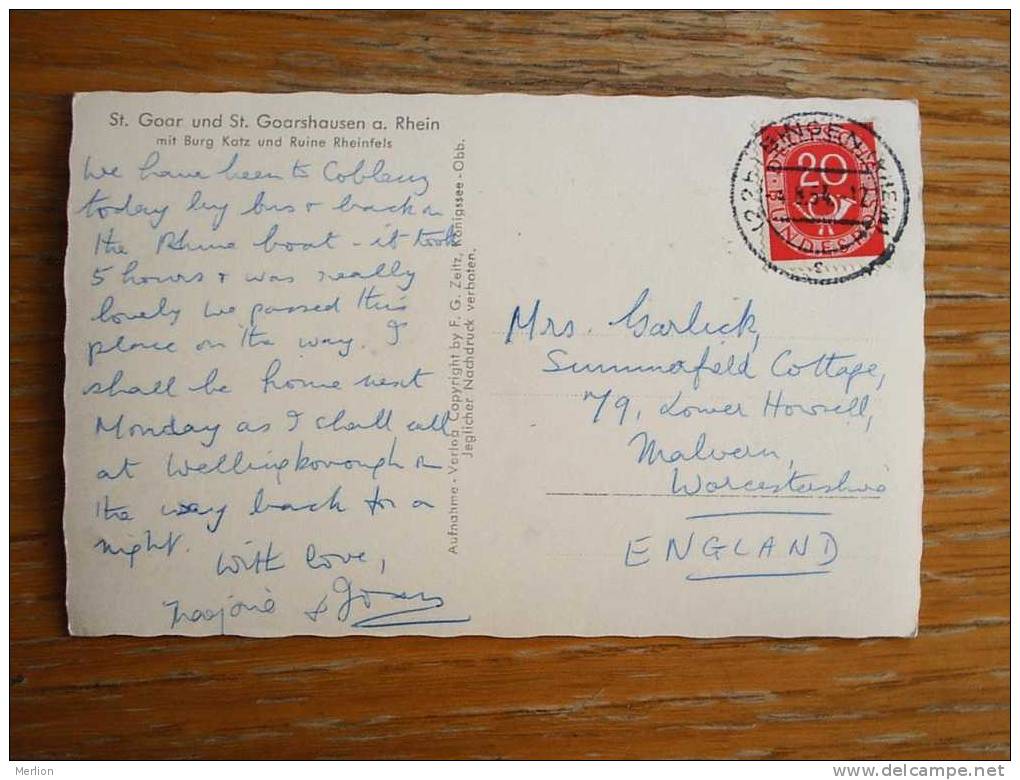 St. Goar und St. Goarshausen a. Rhein
mit Burg Katz und Ruine Rheinfels
We have been to Coblenz
today by bus & back on
the Rhine boat - it took
5 hours & was really
lovely we passed this
place on the way. I
shall be home next
Monday as I shall call
at Wellingborough on
the way back for a
night.
With love,
Marjorie &
Aufnahme - Verlag Copyright by F. G. Zeitz, Königssee - Obb.
Jeglicher Nachdruck verboten.
BINGEN
20
DEUTSCHE BUNDESPOST
Mrs. Garlick,
Summerfield Cottage,
79, Lower Howsell,
Malvern,
Worcestershire
ENGLAND
Merlion
www.delcampe.net